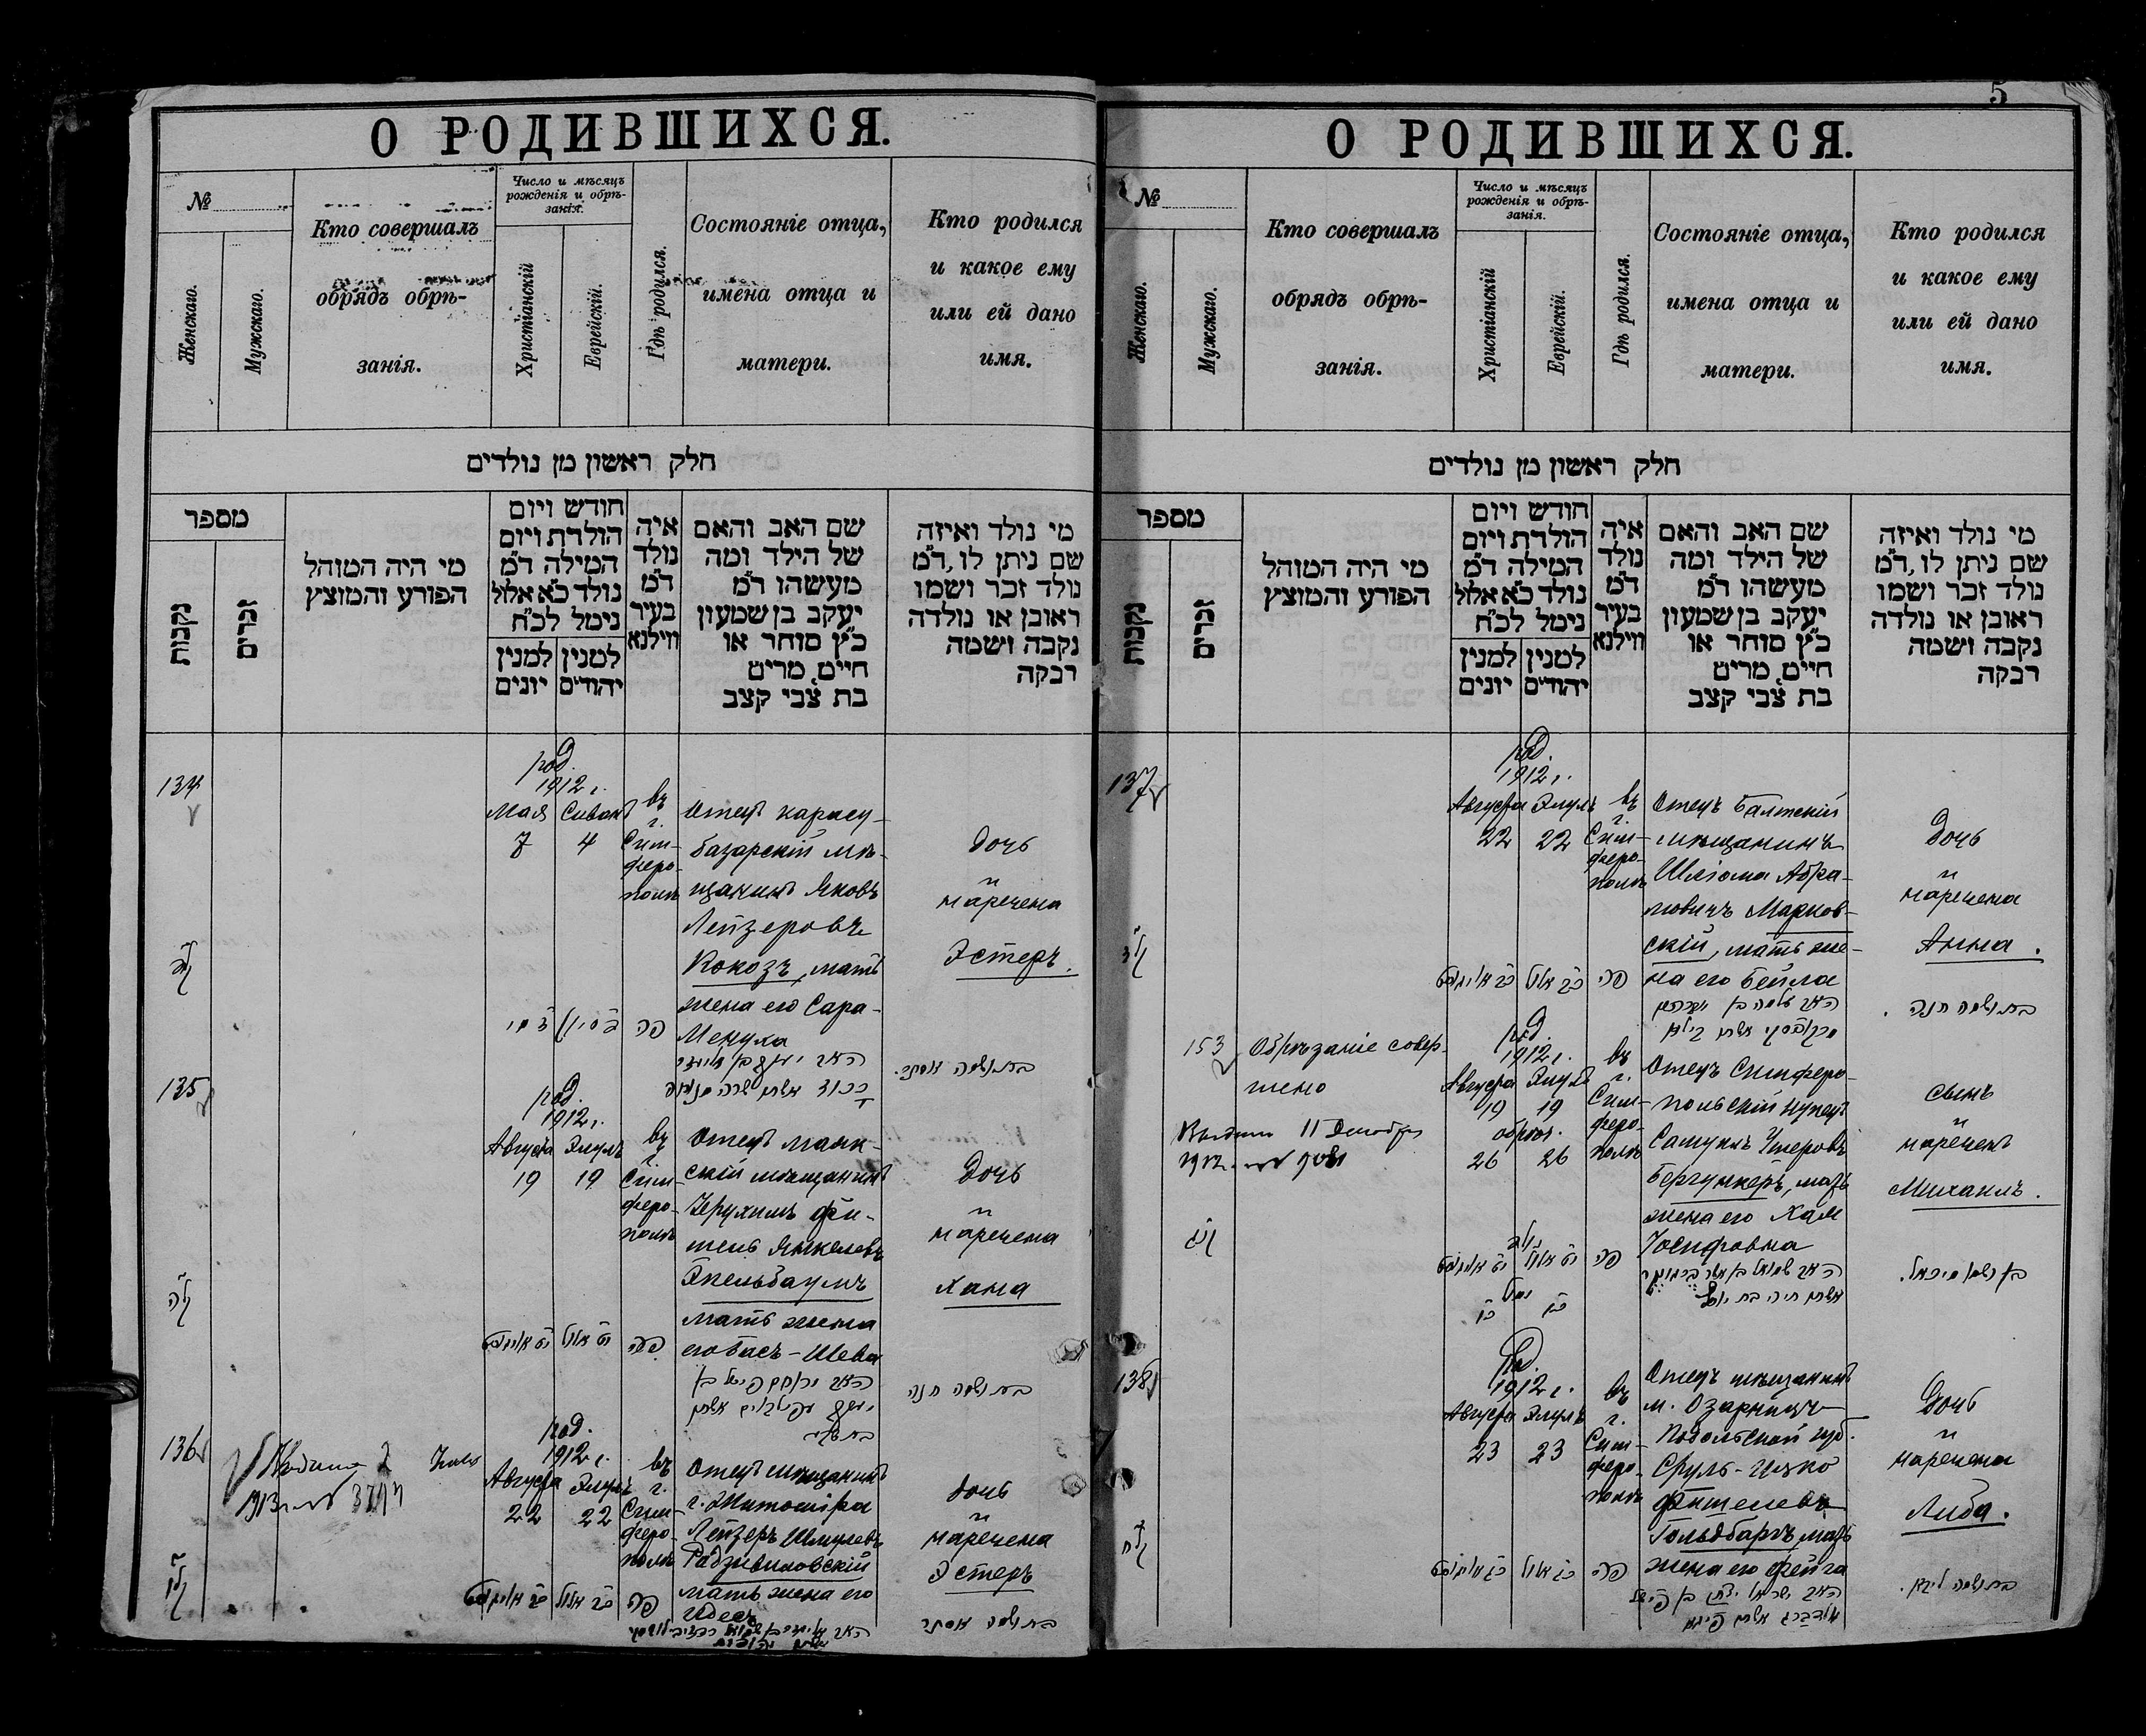 О РОДИВШИХСЯ.
№
Женскаго.
Мужскаго.
Кто совершалъ
обрядъ обрѣ-
занія.
Число и мѣсяцъ
рожденія и обрѣ-
занія.
Христіанскій
Еврейскій.
Гдѣ родился.
Состояніе отца,
имена отца и
матери.
Кто родился
и какое ему
или ей дано
имя.
חלק ראשון מן נולדים
מספר
נקבות
זכרים
מי היה המוהל
הפורע והמוצץ
חודש ויום
הולדת ויום
המילה ד״מ
נולד כ״א אלול
נימל לכ״ח
למנין
יונים
למנין
יהודים
איה
נולד
ד״מ
בעיר
ווילנא
שם האב והאם
של הילד ומה
מעשהו ד״מ
יעקב בן שמעון
כ״ץ סוחר או
חיים מרים
בת צבי קצב
מי נולד ואיזה
שם ניתן לו, ד״מ
נולד זכר ושמו
ראובן או נולדה
נקבה ושמה
רבקה
134
род.
1912 г.
Мая Сиванъ
7 4
въ
г.
Сим-
феро-
полѣ
Отецъ карасу-
базарскій мѣ-
щанинъ Яковъ
Лейзеровъ
Кокозъ, мать
жена его Сара-
Менуха
Дочь
наречена
Эстеръ.
פה
בת ושמה אסתר.
135
род.
1912 г.
Августа Элулъ
19 19
въ
г.
Сим-
феро-
полѣ
Отецъ
скій мѣщанинъ
Іерухимъ Фи-
шель Янкелевъ
Эпельбаумъ
мать жена
его Бася-Шева
Дочь
наречена
Хана
קלה
פה
בת ושמה חנה
136
1913
род.
1912 г.
Августа Элулъ
22 22
въ
г.
Сим-
феро-
полѣ
Отецъ мѣщанинъ
г. Житоміра
Лейзеръ Шмулевъ
Радзивиловскій
мать жена его
Идесъ
Дочь
наречена
Эстеръ
פה
בת ושמה אסתר
5
О РОДИВШИХСЯ.
№
Женскаго.
Мужскаго.
Кто совершалъ
обрядъ обрѣ-
занія.
Число и мѣсяцъ
рожденія и обрѣ-
занія.
Христіанскій
Еврейскій.
Гдѣ родился.
Состояніе отца,
имена отца и
матери.
Кто родился
и какое ему
или ей дано
имя.
חלק ראשון מן נולדים
מספר
נקבות
זכרים
מי היה המוהל
הפורע והמוצץ
חודש ויום
הולדת ויום
המילה ד״מ
נולד כ״א אלול
נימל לכ״ח
למנין
יונים
למנין
יהודים
איה
נולד
ד״מ
בעיר
ווילנא
שם האב והאם
של הילד ומה
מעשהו ד״מ
יעקב בן שמעון
כ״ץ סוחר או
חיים מרים
בת צבי קצב
מי נולד ואיזה
שם ניתן לו, ד״מ
נולד זכר ושמו
ראובן או נולדה
נקבה ושמה
רבקה
137
род.
1912 г.
Августа Элулъ
22 22
въ
г.
Сим-
феро-
полѣ
Отецъ Балтскій
мѣщанинъ
Шлёма Абра-
мовичъ Марков-
скій, мать же-
на его Бейла
Дочь
наречена
Анна.
פה
בת ושמה חנה.
153
Обрѣзаніе совер-
шено
11 Декабря
1912
род.
1912 г.
Августа Элулъ
19 19
обрѣз.
26 26
въ
г.
Сим-
феро-
полѣ
Отецъ Симферо-
польскій купецъ
Самуилъ Ушеровъ
Бергункеръ, мать
жена его Хая
Іосифовна
Сынъ
нареченъ
Михаилъ.
פה
בן ושמו מיכאל.
138
Род.
1912 г.
Августа Элулъ
23 23
въ
г.
Сим-
феро-
полѣ
Отецъ мѣщанинъ
м. Озаринцъ
Подольской губ.
Сруль-Ицко
Фишелевъ
Гольдбаргъ, мать
жена его Фейга
Дочь
наречена
Либа.
קלח
פה
בת ושמה ליבא.